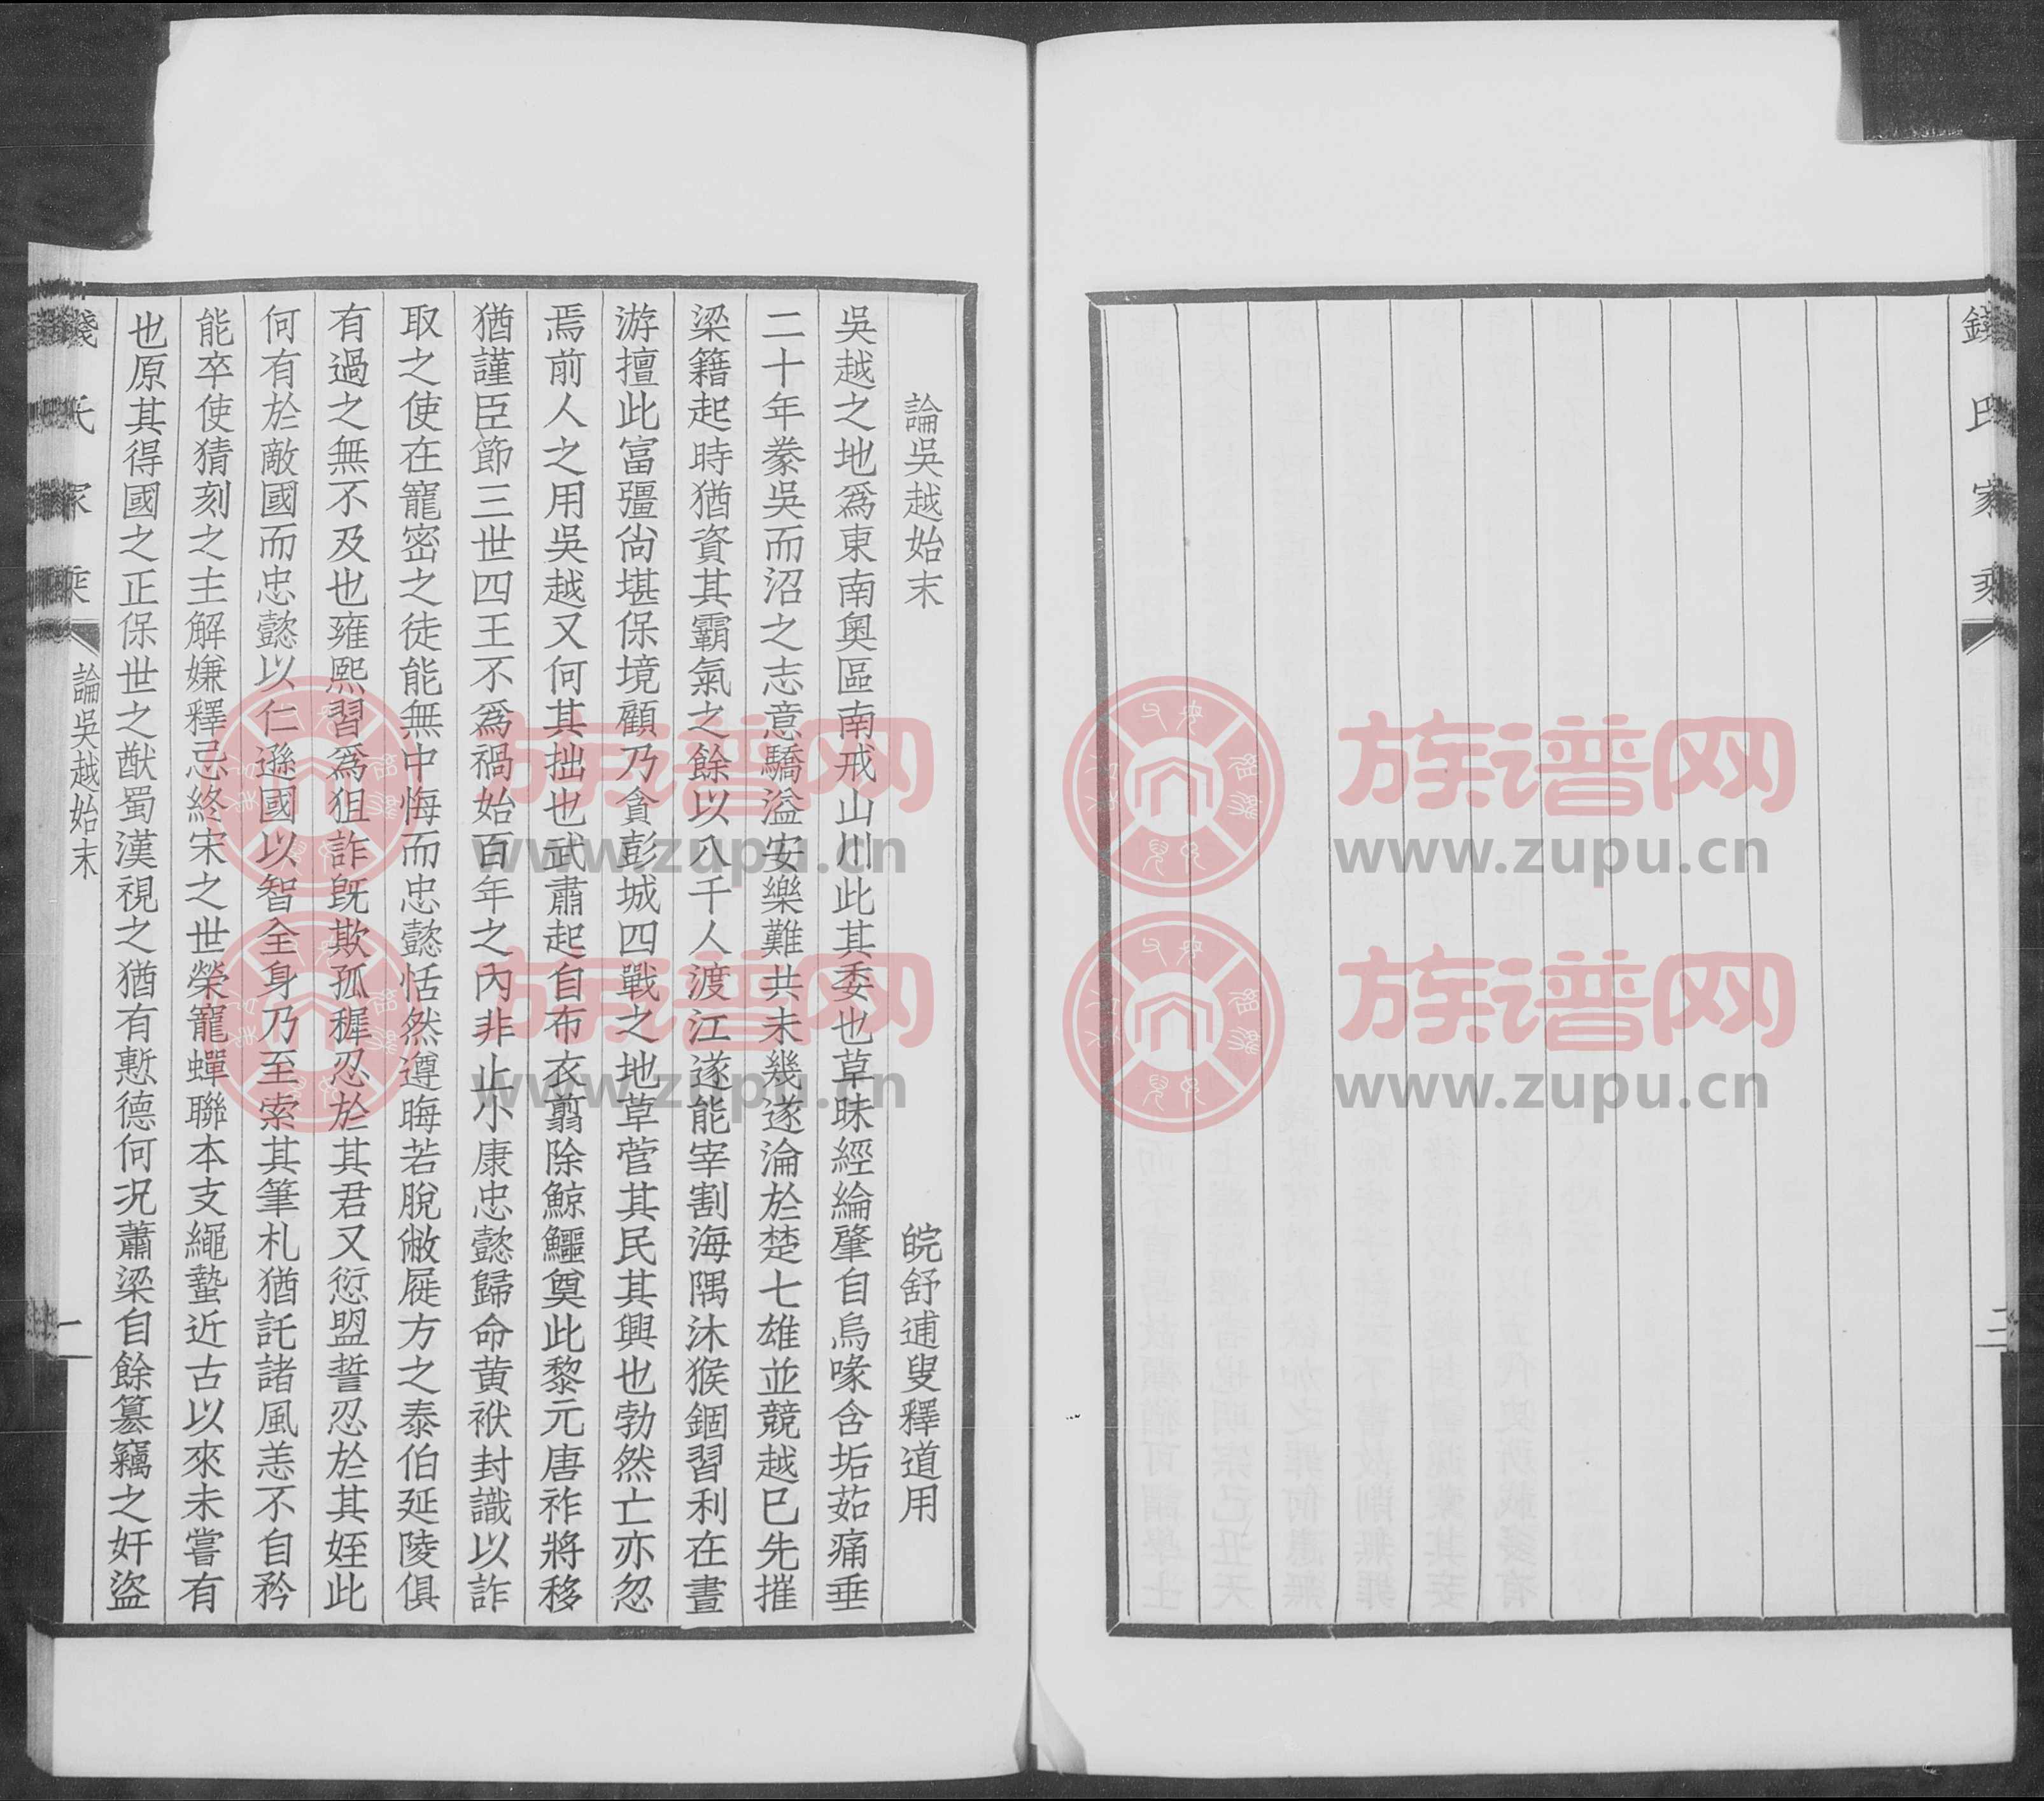 錢氏家乘
二
論吳越始末
皖舒逋叟釋道用
吳越之地爲東南奧區南戒山川此其委也草昧經綸肇自烏喙含垢茹痛垂
二十年豢吳而沼之志意驕溢安樂難共未幾遂淪於楚七雄並競越已先摧
梁籍起時猶資其霸氣之餘以八千人渡江遂能宰割海隅沐猴錮習利在晝
游擅此富彊尙堪保境顧乃貪彭城四戰之地草菅其民其興也勃然亡亦忽
焉前人之用吳越又何其拙也武肅起自布衣翦除鯨鱷奠此黎元唐祚將移
猶謹臣節三世四王不爲禍始百年之內非止小康忠懿歸命黃袱封識以詐
取之使在寵密之徒能無中悔而忠懿恬然遵晦若脫敝屣方之泰伯延陵俱
有過之無不及也雍熙習爲狙詐旣欺孤穉忍於其君又愆盟誓忍於其姪此
何有於敵國而忠懿以仁遜國以智全身乃至索其筆札猶託諸風恙不自矜
能卒使猜刻之主解嫌釋忌終宋之世榮寵蟬聯本支繩蟄近古以來未嘗有
也原其得國之正保世之猷蜀漢視之猶有慙德何況蕭梁自餘篡竊之奸盜
錢氏家乘
論吳越始末
一
www.zupu.cn
族谱网
www.zupu.cn
族谱网
www.zupu.cn
族谱网
www.zupu.cn
族谱网